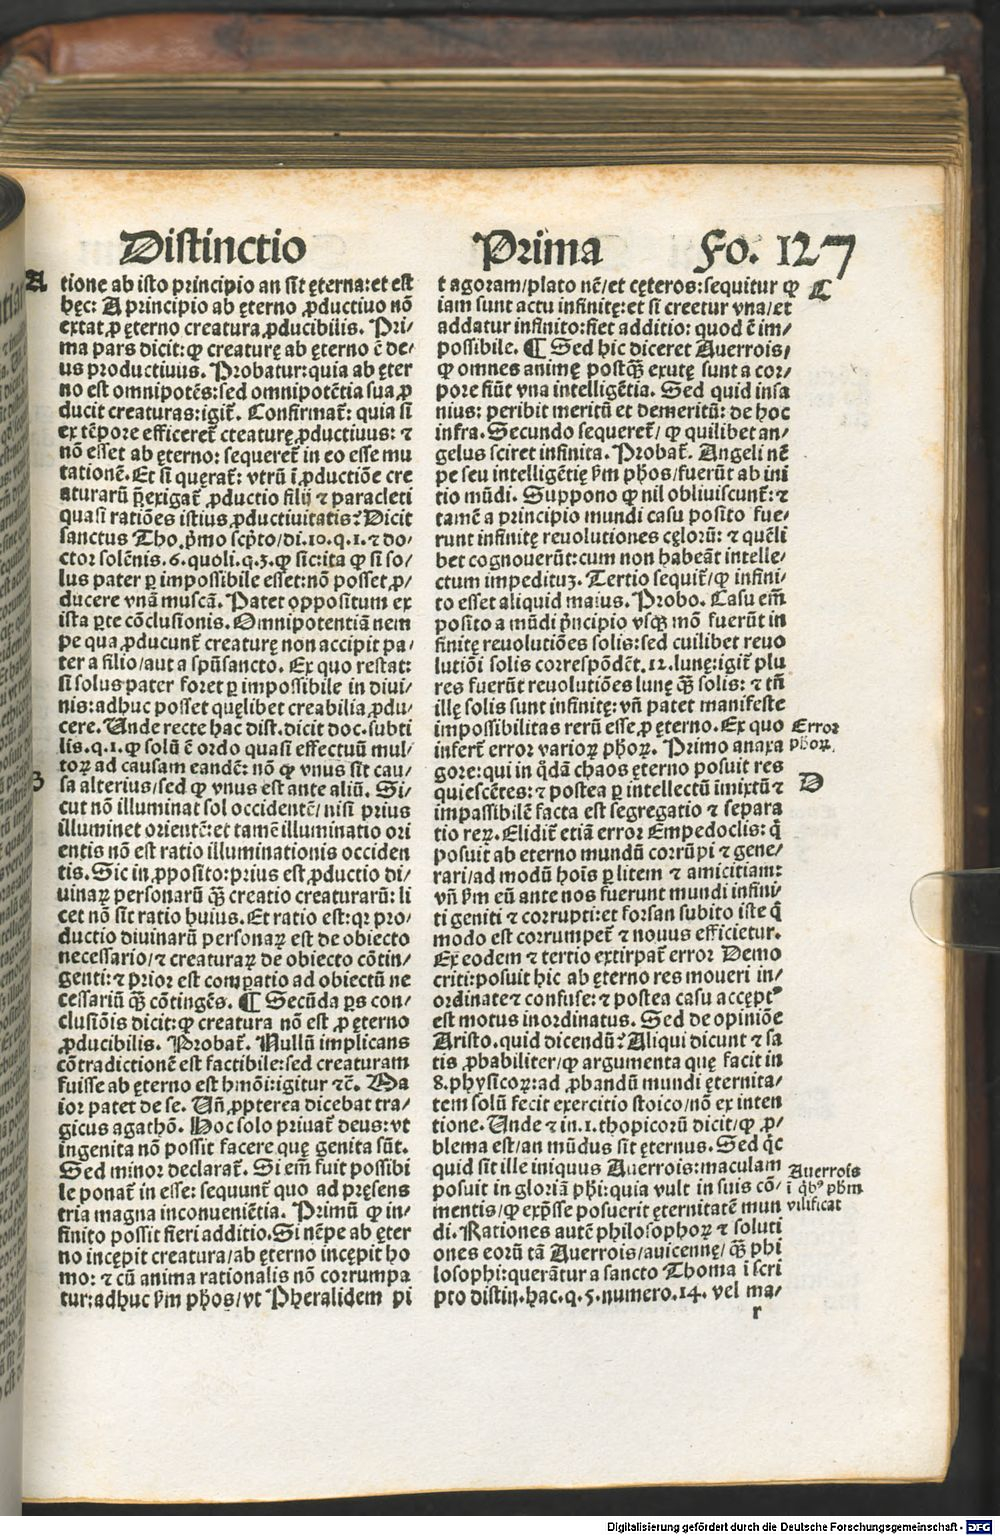 Distinctio Prima Fo. 127
A
tione ab isto principio an sit ęterna:et est
hęc: A principio ab ęterno ꝓductiuo nō
extat ꝓ ęterno creatura ꝓducibilis. Pri⸗
ma pars dicit:ꝙ creaturę ab ęterno ē de⸗
us productiuus. Probatur:quia ab ęter
no est omnipotēs:sed omnipotētia sua ꝓ
ducit creaturas:igit̄. Confirmat̄: quia si
ex tēpore efficeret̄ cteaturę ꝓductiuus: ⁊
nō esset ab ęterno: sequeret̄ in eo esse mu
tationē. Et si quęrat̄: vtrū ī ꝓductiōe cre
aturarū p̄exigat̄ ꝓductio filij ⁊ paracleti
quasi ratiōes istius ꝓductiuitatis? Dicit
sanctus Tho. p̄mo scp̄to/di.10.q.1.⁊ do⸗
ctor solēnis.6.quoli.q.3.ꝙ sic:ita ꝙ si so⸗
lus pater ꝑ impossibile esset:nō posset ꝓ⸗
ducere vnā muscā. Patet oppositum ex
ista ꝑte cōclusionis. Omnipotentiā nem
pe qua ꝓducunt̄ creaturę non accipit pa⸗
ter a filio/aut a spūsancto. Ex quo restat:
si solus pater foret ꝑ impossibile in diui⸗
nis:adhuc posset quęlibet creabilia ꝓdu⸗
cere. Unde recte hac dist.dicit doc.subti
lis.q.1.ꝙ solū ē ordo quasi effectuū mul⸗
toꝝ ad causam eandē: nō ꝙ vnus sit cau⸗
B
sa alterius/sed ꝙ vnus est ante aliū. Si⸗
cut nō illuminat sol occidentē/nisi prius
illuminet orientē:et tamē illuminatio ori
entis nō est ratio illuminationis occiden
tis. Sic in ꝓposito:prius est ꝓductio di⸗
uinaꝝ personarū qꝫ̄ creatio creaturarū: li
cet nō sit ratio huius. Et ratio est: qꝛ pro⸗
ductio diuinarū personaꝝ est de obiecto
necessario/⁊ creaturaꝝ de obiecto cōtin⸗
genti:⁊ prior est comꝑatio ad obiectū ne
cessariū qꝫ̄ cōtingēs. ¶ Secūda ꝑs con⸗
clusiōis dicit:ꝙ creatura nō est ꝓ ęterno
ꝓducibilis. Probat̄. Nullū implicans
cōtradictionē est factibile:sed creaturam
fuisse ab ęterno est hmōi:igitur ⁊c̄. Ma
ior patet de se. Uñ ꝓpterea dicebat tra⸗
gicus agathō. Hoc solo priuat̄ deus:vt
ingenita nō possit facere quę genita sūt.
Sed minor declarat̄. Si em̄ fuit possibi
le ponat̄ in esse: sequunt̄ quo ad pręsens
tria magna inconueniētia. Primū ꝙ in⸗
finito possit fieri additio.Si nēpe ab ęter
no incępit creatura/ab ęterno incępit ho
mo: ⁊ cū anima rationalis nō corrumpa
tur:adhuc ẜm phos/vt Pheralidem pi
t agoram/plato nē/et cęteros:sequitur ꝙ
C
iam sunt actu infinitę:et si creetur vna/et
addatur infinito:fiet additio: quod ē im⸗
possibile. ¶ Sed hic diceret Auerrois/
ꝙ omnes animę postqꝫ̄ exutę sunt a cor⸗
pore fiūt vna intelligētia. Sed quid insa
nius: peribit meritū et demeritū: de hoc
infra. Secundo sequeret̄/ ꝙ quilibet an⸗
gelus sciret infinita. Probat̄. Angeli nē
pe seu intelligētię ẜm phos/fuerūt ab ini
tio mūdi. Suppono ꝙ nil obliuiscunt̄: ⁊
tamē a principio mundi casu posito fue⸗
runt infinitę reuolutiones cęlorū: ⁊ quēli
bet cognouerūt:cum non habeāt intelle⸗
ctum impedituꝫ. Tertio sequit̄/ꝙ infini⸗
to esset aliquid maius. Probo. Casu em̄
posito a mūdi p̄ncipio vsqꝫ mō fuerūt in
finitę reuolutiōes solis:sed cuilibet reuo
lutiōi solis correspōdēt.12.lunę:igit̄ plu
res fuerūt reuolutiōes lunę qꝫ̄ solis: ⁊ tn̄
illę solis sunt infinitę: vñ patet manifeste
impossibilitas rerū esse ꝓ ęterno. Ex quo
Error
phoꝝ.
infert̄ error varioꝝ phoꝝ. Primo anaxa
gore:qui in q̄dā chaos ęterno posuit res
D
quiescētes:⁊ postea ꝑ intellectū imixtū ⁊
impassibilē facta est segregatio ⁊ separa
tio reꝝ. Elidit̄ etiā error Empedoclis: q̄
posuit ab eterno mundū corrūpi ⁊ gene⸗
rari/ad modū hois ꝑ litem ⁊ amicitiam:
vñ ẜm eū ante nos fuerunt mundi infini⸗
ti geniti ⁊ corrupti:et forsan subito iste q̄
modo est corrumpet̄ ⁊ nouus efficietur.
Ex eodem ⁊ tertio extirpat̄ error Demo
criti:posuit hic ab ęterno res moueri in⸗
ordinate⁊ confuse: ⁊ postea casu accępt⁹
est motus inordinatus. Sed de opiniōe
Aristo.quid dicendū? Aliqui dicunt ⁊ sa
tis ꝓbabiliter/ꝙ argumenta quę facit in
8.physicoꝝ:ad ꝓbandū mundi ęternita⸗
tem solū fecit exercitio stoico/nō ex inten
tione. Unde ⁊ in.1.thopicorū dicit/ꝙ ꝓ⸗
blema est/an mūdus sit ęternus. Sed q̄c
quid sit ille iniquus Auerrois:maculam
Auerrois
ī qb⁹ phm
vilificat
posuit in gloriā phi:quia vult in suis cō⸗
mentis/ꝙ exp̄sse posuerit ęternitatē mun
di. Rationes autē philosophoꝝ ⁊ soluti
ones eorū tā Auerrois/auicennę/qꝫ̄ phi
losophi:querātur a sancto Thoma ī scri
pto distin.hac.q.5.numero.14. vel ma⸗
r
Digitalisierung gefördert durch die Deutsche Forschungsgemeinschaft - DFG